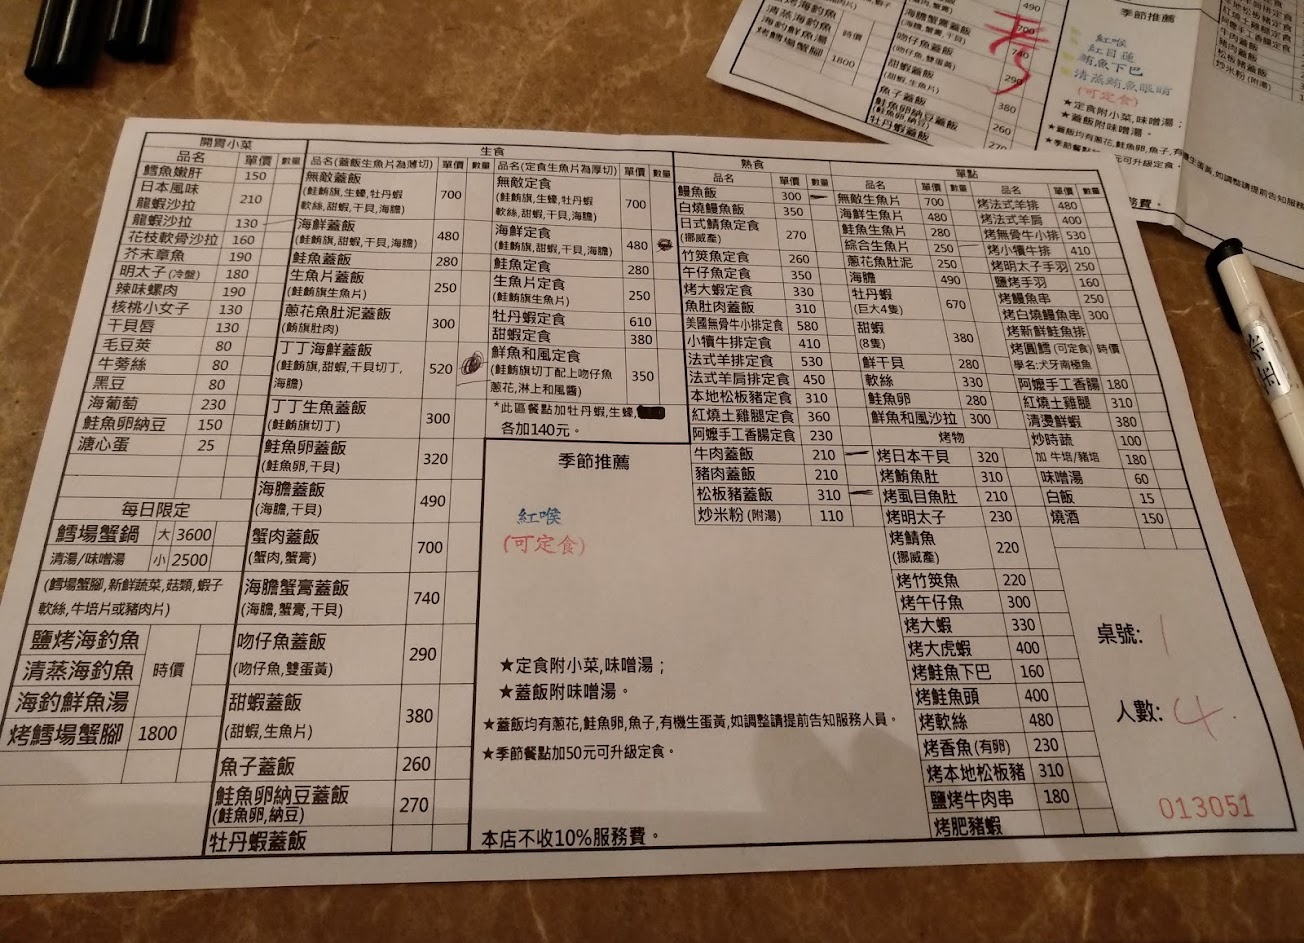 開胃小菜
品名 單價 數量
鱈魚嫩肝 150
日本風味
龍蝦沙拉 210
龍蝦沙拉 130
花枝軟骨沙拉 160
芥末章魚 190
明太子(冷盤) 180
辣味螺肉 190
核桃小女子 130
干貝唇 130
毛豆莢 80
牛蒡絲 80
黑豆 80
海葡萄 230
鮭魚卵納豆 150
溏心蛋 25
每日限定
鱈場蟹鍋 大 3600
清湯/味噌湯 小 2500
(鱈場蟹腳,新鮮蔬菜,菇類,蝦子
軟絲,牛培片或豬肉片)
鹽烤海釣魚
清蒸海釣魚 時價
海釣鮮魚湯
烤鱈場蟹腳 1800
生食
品名(蓋飯生魚片為薄切) 單價 數量
無敵蓋飯
(鮭鮪旗,生蠔,牡丹蝦
軟絲,甜蝦,干貝,海膽) 700
海鮮蓋飯
(鮭鮪旗,甜蝦,干貝,海膽) 480
鮭魚蓋飯 280
生魚片蓋飯
(鮭鮪旗生魚片) 250
蔥花魚肚泥蓋飯
(鮪旗肚肉) 300
丁丁海鮮蓋飯
(鮭鮪旗,甜蝦,干貝切丁,
海膽) 520
丁丁生魚蓋飯
(鮭鮪旗切丁) 300
鮭魚卵蓋飯
(鮭魚卵,干貝) 320
海膽蓋飯
(海膽,干貝) 490
蟹肉蓋飯
(蟹肉,蟹膏) 700
海膽蟹膏蓋飯
(海膽,蟹膏,干貝) 740
吻仔魚蓋飯
(吻仔魚,雙蛋黃) 290
甜蝦蓋飯
(甜蝦,生魚片) 380
魚子蓋飯 260
鮭魚卵納豆蓋飯
(鮭魚卵,納豆) 270
牡丹蝦蓋飯
品名(定食生魚片為厚切) 單價 數量
無敵定食
(鮭鮪旗,生蠔,牡丹蝦
軟絲,甜蝦,干貝,海膽) 700
海鮮定食
(鮭鮪旗,甜蝦,干貝,海膽) 480
鮭魚定食 280
生魚片定食
(鮭鮪旗生魚片) 250
牡丹蝦定食 610
甜蝦定食 380
鮮魚和風定食
(鮭鮪旗切丁配上吻仔魚
蔥花,淋上和風醬) 350
*此區餐點加牡丹蝦,生蠔,
各加140元。
季節推薦
紅喉
(可定食)
★定食附小菜,味噌湯；
★蓋飯附味噌湯。
★蓋飯均有蔥花,鮭魚卵,魚子,有機生蛋黃,如調整請提前告知服務人員。
★季節餐點加50元可升級定食。
本店不收10%服務費。
熟食
品名 單價 數量
鰻魚飯 300
白燒鰻魚飯 350
日式鯖魚定食
(挪威產) 270
竹筴魚定食 260
午仔魚定食 350
烤大蝦定食 330
魚肚肉蓋飯 310
美國無骨牛小排定食 580
小犢牛排定食 410
法式羊排定食 530
法式羊肩排定食 450
本地松板豬定食 310
紅燒土雞腿定食 360
阿嬤手工香腸定食 230
牛肉蓋飯 210
豬肉蓋飯 210
松板豬蓋飯 310
炒米粉(附湯) 110
單點
品名 單價 數量
無敵生魚片 700
海鮮生魚片 480
鮭魚生魚片 280
綜合生魚片 250
蔥花魚肚泥 250
海膽 490
牡丹蝦
(巨大4隻) 670
甜蝦
(8隻) 380
鮮干貝 280
軟絲 330
鮭魚卵 280
鮮魚和風沙拉 300
烤物
烤日本干貝 320
烤鮪魚肚 310
烤虱目魚肚 210
烤明太子 230
烤鯖魚
(挪威產) 220
烤竹筴魚 220
烤午仔魚 300
烤大蝦 330
烤大虎蝦 400
烤鮭魚下巴 160
烤鮭魚頭 400
烤軟絲 480
烤香魚(有卵) 230
烤本地松板豬 310
鹽烤牛肉串 180
烤肥豬蝦
品名 單價 數量
烤法式羊排 480
烤法式羊肩 400
烤無骨牛小排 530
烤小犢牛排 410
烤明太子手羽 250
鹽烤手羽 160
烤鰻魚串 250
烤白燒鰻魚串 300
烤新鮮鮭魚排
烤圓鱈(可定食) 時價
學名:犬牙南極魚
阿嬤手工香腸 180
紅燒土雞腿 310
清燙鮮蝦 380
炒時蔬 100
加 牛培/豬培 180
味噌湯 60
白飯 15
燒酒 150
桌號: 1
人數: 4
013051
清蒸海釣魚
海釣鮮魚湯 時價
烤鱈場蟹腳 1800
490
海膽蟹膏蓋飯
(海膽,蟹膏,干貝) 740
吻仔魚蓋飯
(吻仔魚,雙蛋黃) 290
甜蝦蓋飯
(甜蝦,生魚片) 380
魚子蓋飯 260
鮭魚卵納豆蓋飯
(鮭魚卵,納豆) 270
牡丹蝦蓋飯
季節推薦
紅喉
紅目蓮
鮪魚下巴
清蒸鮪魚眼睛
(可定食)
★定食附小菜,味噌湯；
★蓋飯附味噌湯。
紅燒土雞腿定食
阿嬤手工香腸定食
牛肉蓋飯
豬肉蓋飯
松板豬蓋飯
炒米粉(附湯)